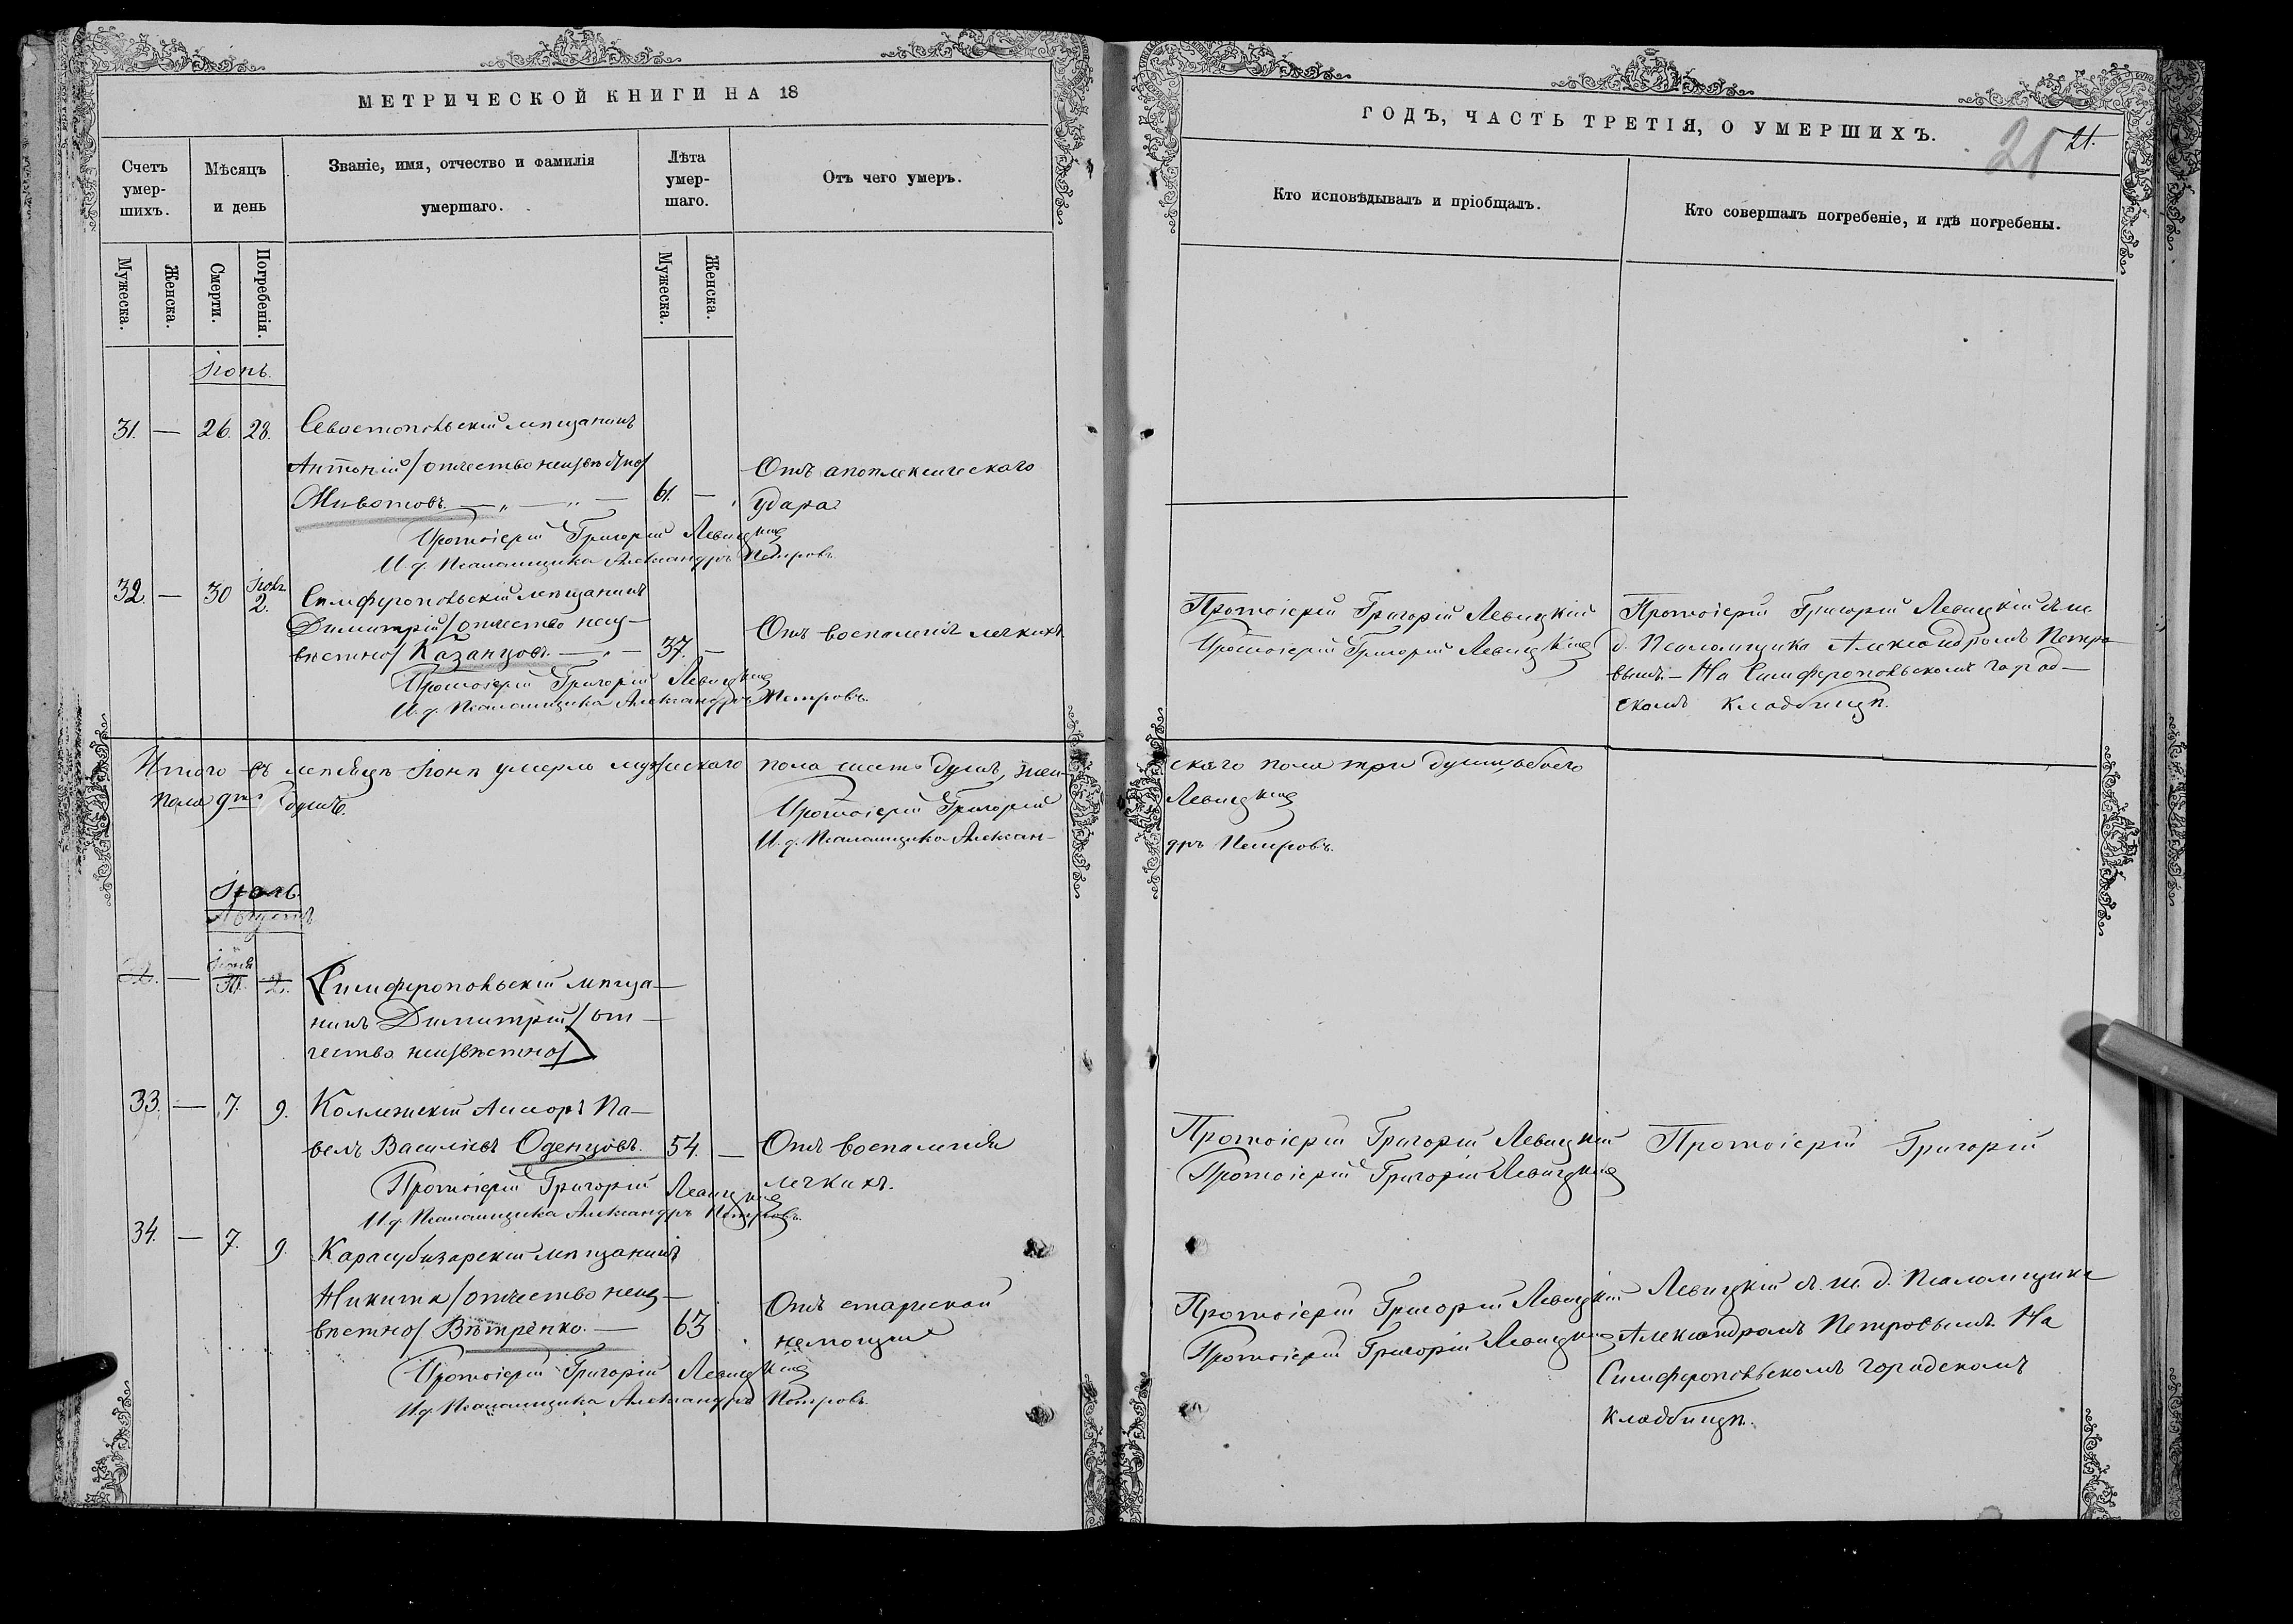 МЕТРИЧЕСКОЙ КНИГИ НА 18
Счетъ умер-шихъ.
Мѣсяцъ и день
Званіе, имя, отчество и фамилія умершаго.
Лѣта умер-шаго.
Отъ чего умеръ.
Мужеска.
Женска.
Смерти.
Погребенія.
Мужеска.
Женска.
Іюнь.
31. — 26. 28. Севастопольскій мѣщанинъ
Антоній /отчество неизвѣстно/
Животовъ. — „ — „ — 61. —
Отъ апоплексическаго
удара
Протоіерей Григорій Левицкій
И. д. Псаломщика Александръ Петровъ.
32. — 30 2. Симферопольскій мѣщанинъ
Димитрій /отчество неиз-
вѣстно/ Казанцовъ. — „ — 37. — Отъ воспаленія легкихъ.
Протоіерей Григорій Левицкій
И. д. Псаломщика Александръ Петровъ.
Итого въ мѣсяцѣ Іюнѣ умерло мужескаго пола шесть душъ, жен-
пола душъ.
Протоіерей Григорій
И. д. Псаломщика Алексан-
Іюль.
Августъ
32. — Іюня 30. 2. Симферопольскій мѣща-
нинъ Димитрій /от-
чество неизвѣстно/
33. — 7. 9. Коллежскій Ассоръ Па-
велъ Васильевъ Оденцовъ. 54. — Отъ воспаленія
легкихъ.
Протоіерей Григорій Левицкій
И. д. Псаломщика Александръ Петровъ.
34. — 7. 9. Карасубазарскій мѣщанинъ
Никита /отчество неиз-
вѣстно/ Вѣтренко. — 63
Отъ старческой
немощи
Протоіерей Григорій Левицкій
И. д. Псаломщика Александръ Петровъ.
ГОДЪ, ЧАСТЬ ТРЕТІЯ, О УМЕРШИХЪ.
21 21.
Кто исповѣдывалъ и пріобщалъ.
Кто совершалъ погребеніе, и гдѣ погребены.
Протоіерей Григорій Левицкій
Протоіерей Григорій Левицкій
Протоіерей Григорій Левицкій съ и.
д. Псаломщика Александромъ Петро-
вымъ. — На Симферопольскомъ город-
скомъ кладбищѣ.
скаго пола три души, обоего
Левицкій
дръ Петровъ.
Протоіерей Григорій Левицкій
Протоіерей Григорій Левицкій
Протоіерей Григорій
Протоіерей Григорій Левицкій
Протоіерей Григорій Левицкій
Левицкій съ и. д. Псаломщика
Александромъ Петровымъ. На
Симферопольскомъ городскомъ
кладбищѣ.